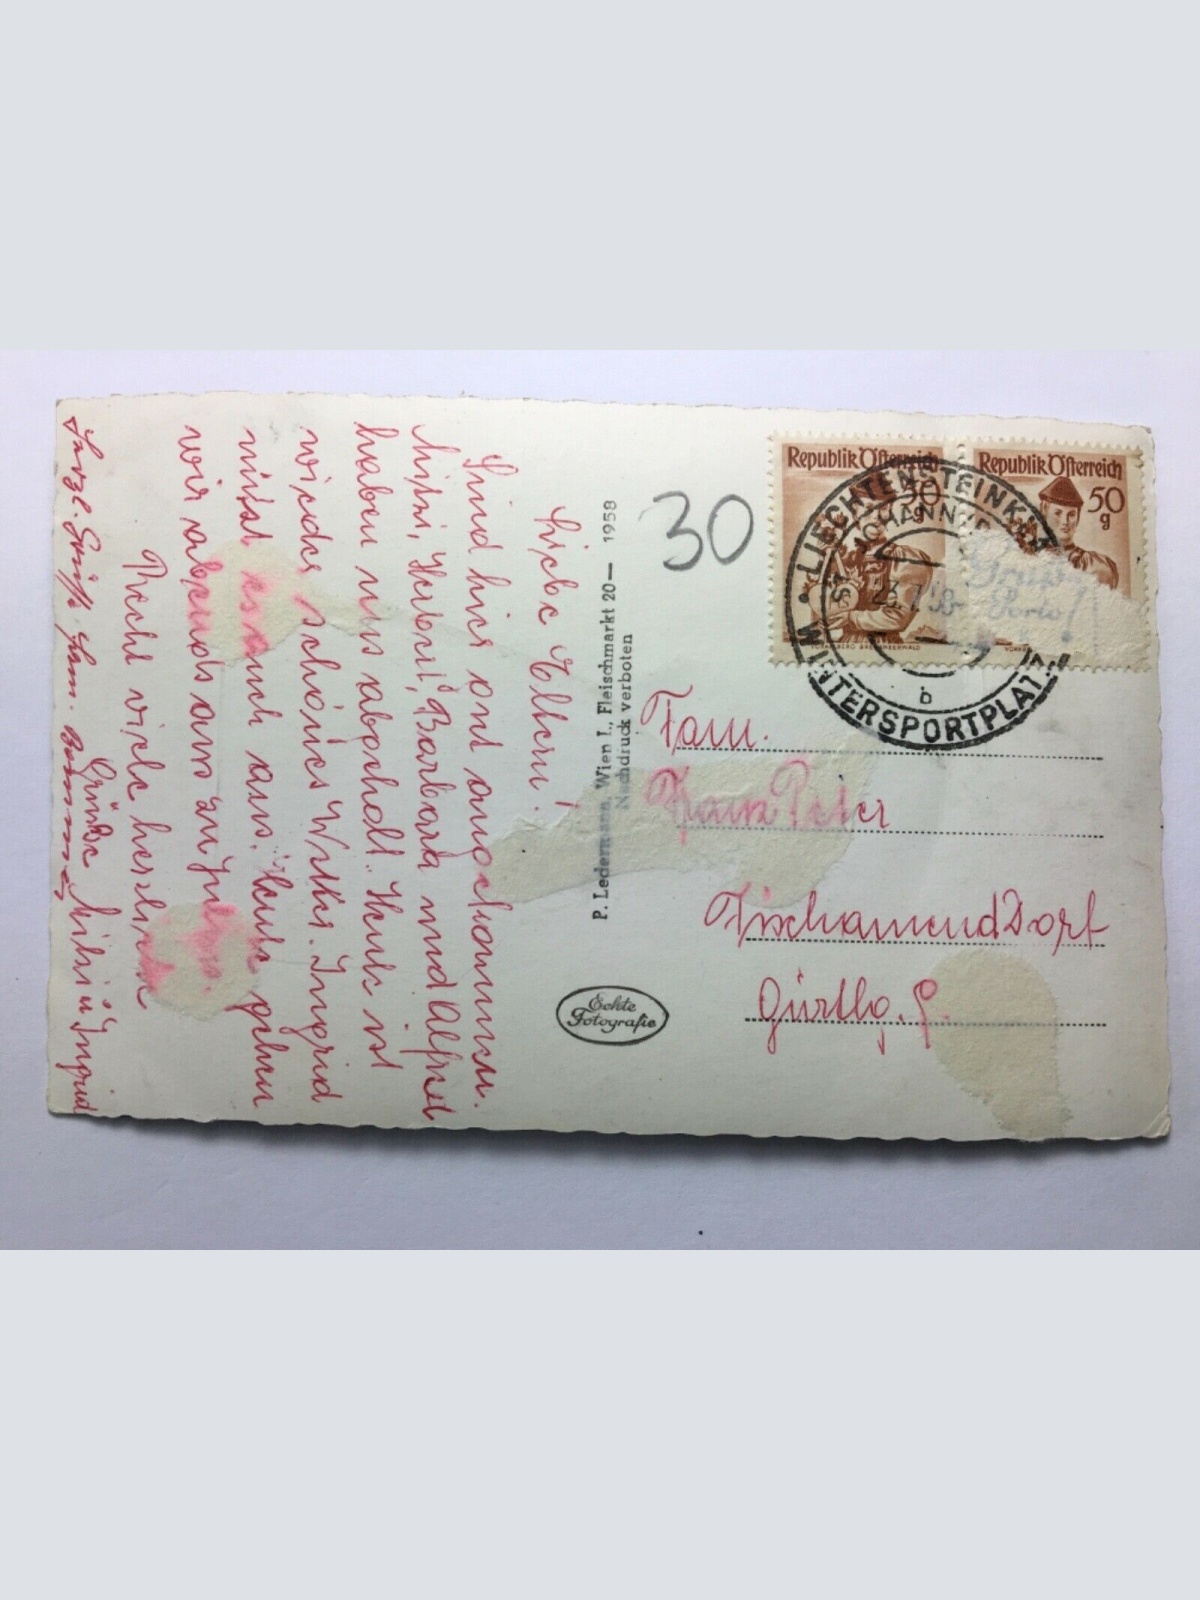 Liebe Eltern!
Sind hier gut angekommen.
Mitzi, Heini, Barbara und Alfred
haben uns abgeholt. Heute ist
wieder schönes Wetter. Ingrid
nützt es auch aus. Heute gehen
wir abends aus zu
Recht viele herzliche
Grüße Mitzi u Ingrid
Herzl. Grüße Fam.
P. Ledermann, Wien I., Fleischmarkt 20— 1958
Nachdruck verboten
Echte
Fotografie
30
Republik Österreich
50
g
Republik Österreich
50
g
LIECHTENSTEINKLAMM
ST. JOHANN
23. 58
b
WINTERSPORTPLATZ
Porto!
Fam.
Franz Peter
Fischamend Dorf
Gürtlg. 9.